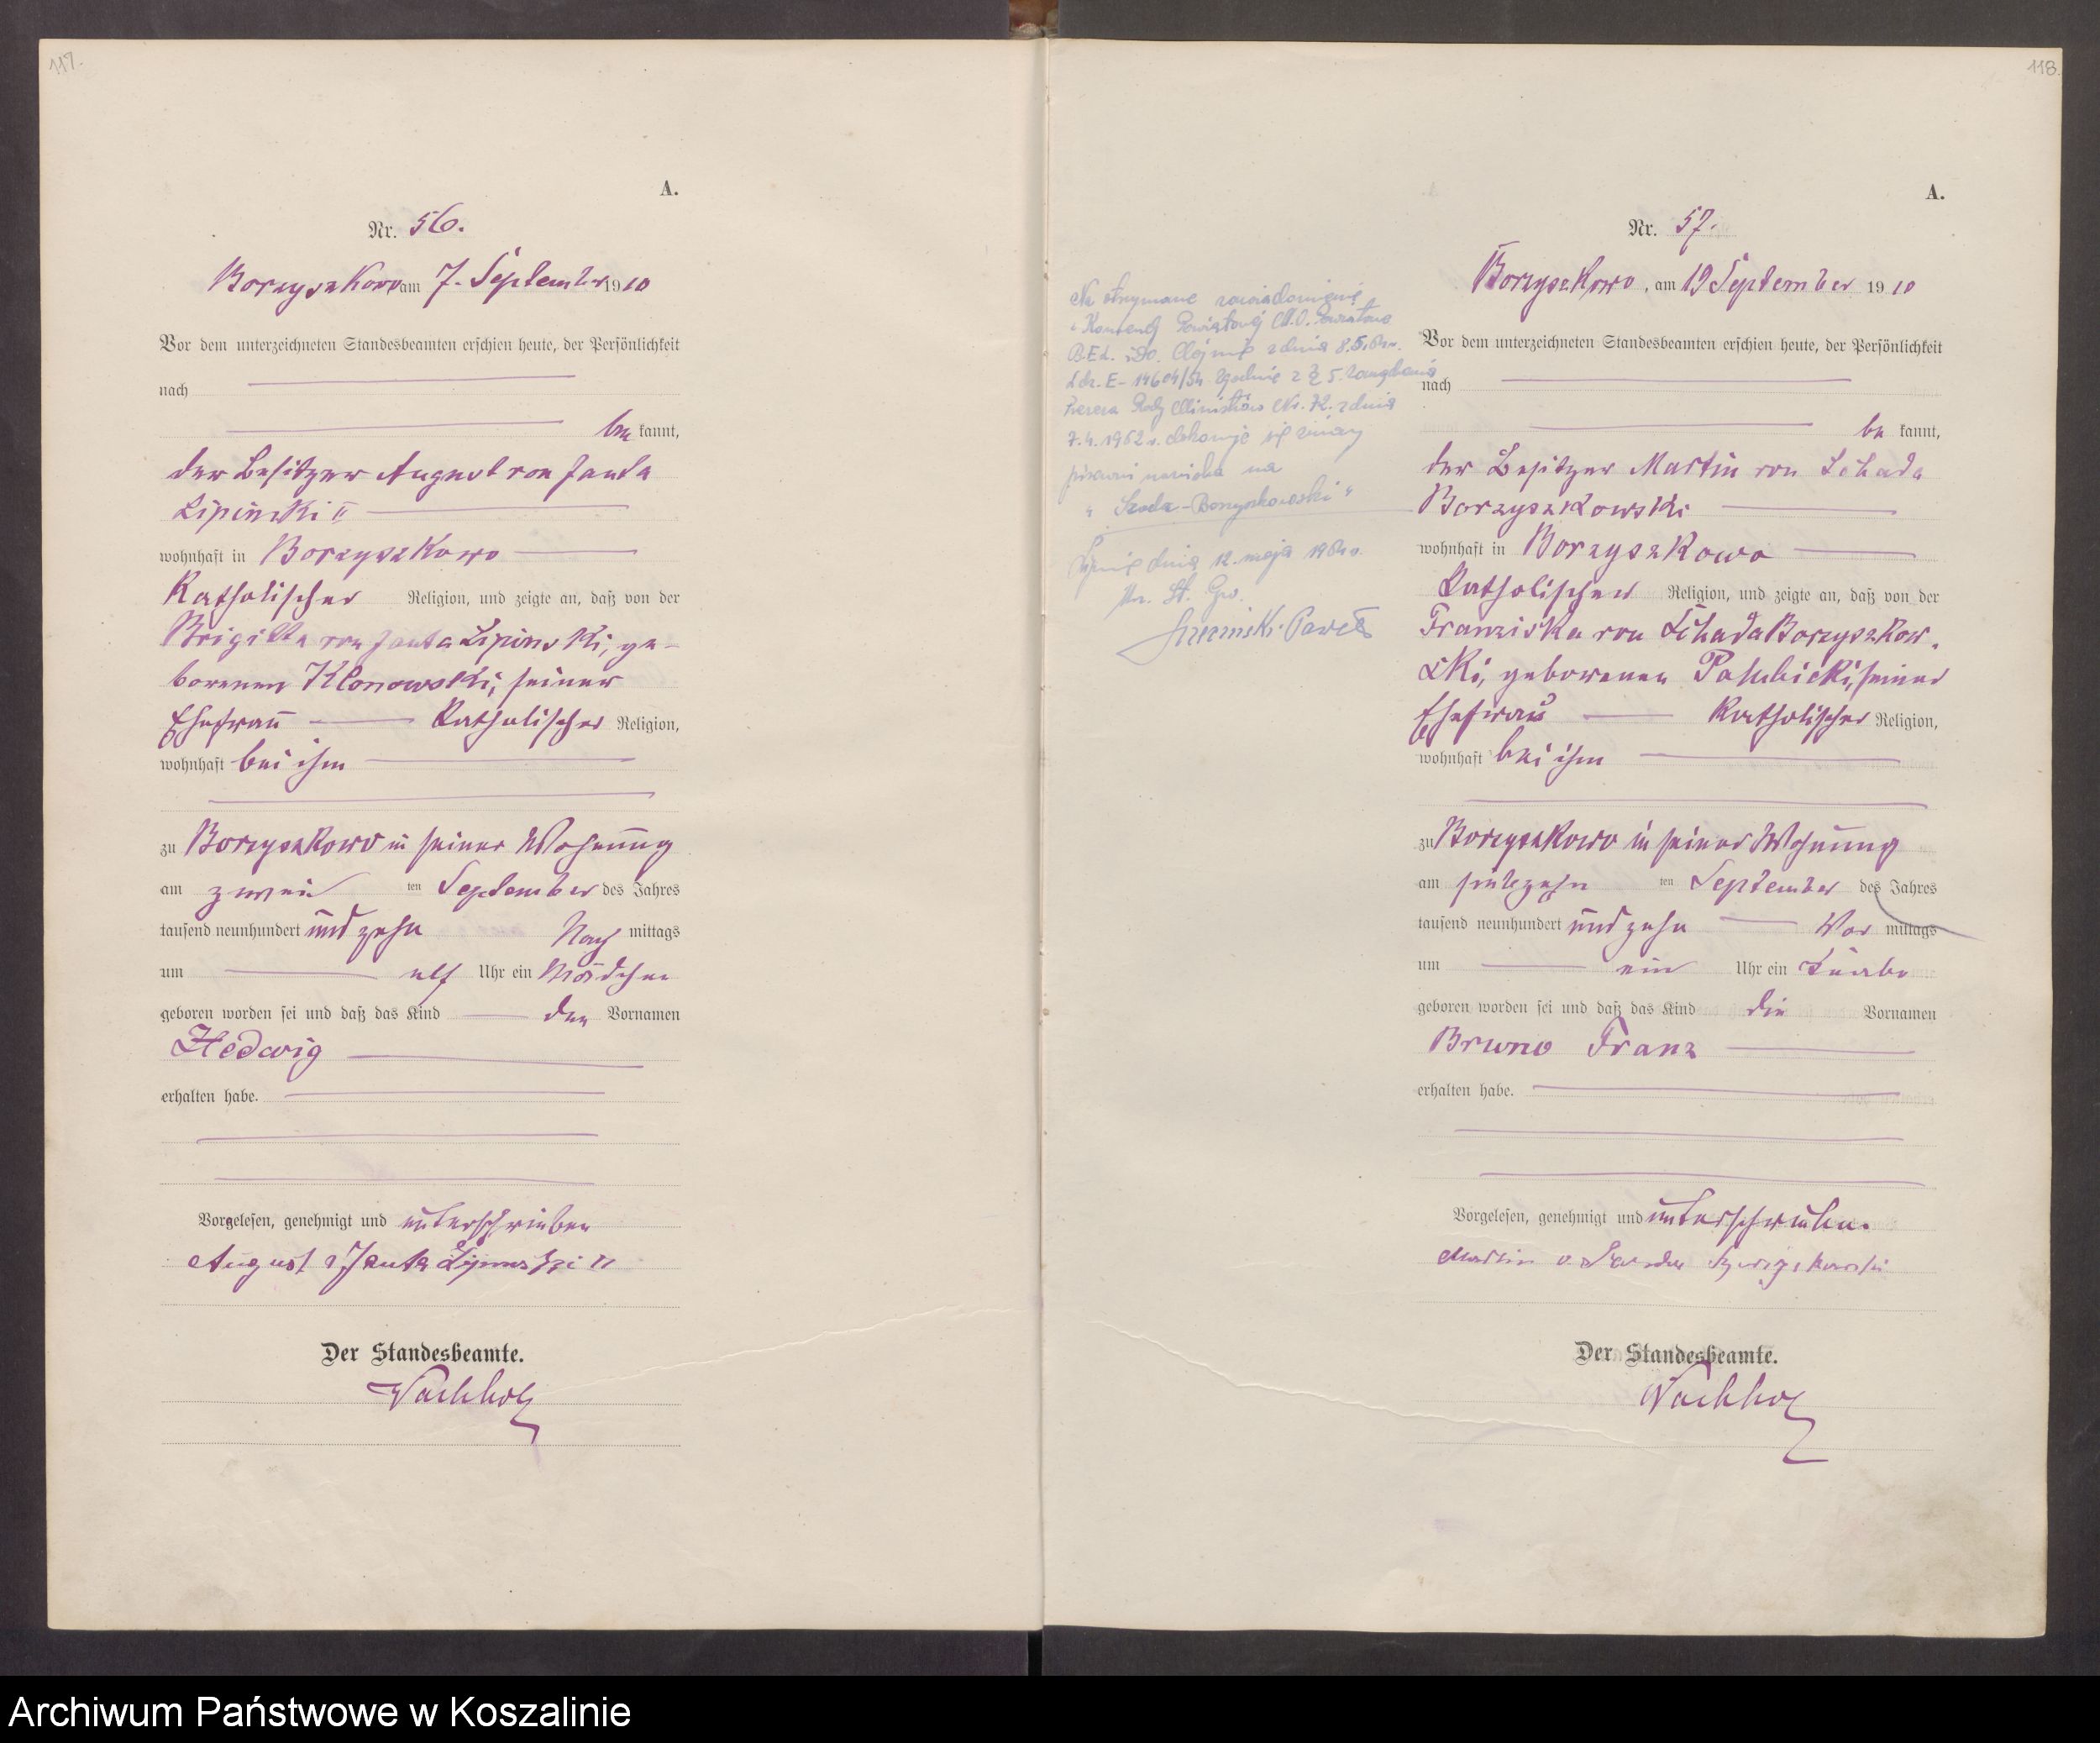 117.
A.
Nr. 56.
Borzyszkowo am 7. September 1910
Vor dem unterzeichneten Standesbeamten erschien heute, der Persönlichkeit
nach
be kannt,
der Besitzer August von Janta
Lipinski II
wohnhaft in Borzyszkowo
Katholischer Religion, und zeigte an, daß von der
Brigitta von Janta Lipinski, ge-
borenen Klonowski, seiner
Ehefrau Katholischer Religion,
wohnhaft bei ihm
zu Borzyszkowo in seiner Wohnung
am zwei ten September des Jahres
tausend neunhundert und zehn Nach mittags
um elf Uhr ein Mädchen
geboren worden sei und daß das Kind den Vornamen
Hedwig
erhalten habe.
Vorgelesen, genehmigt und unterschrieben
August v Janta Lipinski II
Der Standesbeamte.
Nachholz
118.
A.
Nr. 57.
Borzyszkowo, am 19 September 1910
Vor dem unterzeichneten Standesbeamten erschien heute, der Persönlichkeit
nach
be kannt,
der Besitzer Martin von Schada
Borzyszkowski
wohnhaft in Borzyszkowo
Katholischer Religion, und zeigte an, daß von der
Franziska von Schada Borzyszkow-
ski, geborenen Palubicki, seiner
Ehefrau Katholischer Religion,
wohnhaft bei ihm
zu Borzyszkowo in seiner Wohnung
am siebzehn ten September des Jahres
tausend neunhundert und zehn Vor mittags
um ein Uhr ein Knabe
geboren worden sei und daß das Kind die Vornamen
Bruno Franz
erhalten habe.
Vorgelesen, genehmigt und unterschrieben.
Martin v.
Der Standesbeamte.
Nachholz
Na otrzymane zawiadomienie
Komendy Powiatowej M.O.
z dnia 8.5.
E-14604/54 zgodnie z § 5.
Prezesa Rady Ministrów Nr. 72. z dnia
7.4.1952 r. dokonuje się zmiany
pisowni nazwiska na
"Szada-Borzyszkowski"
dnia 12. maja
Archiwum Państwowe w Koszalinie